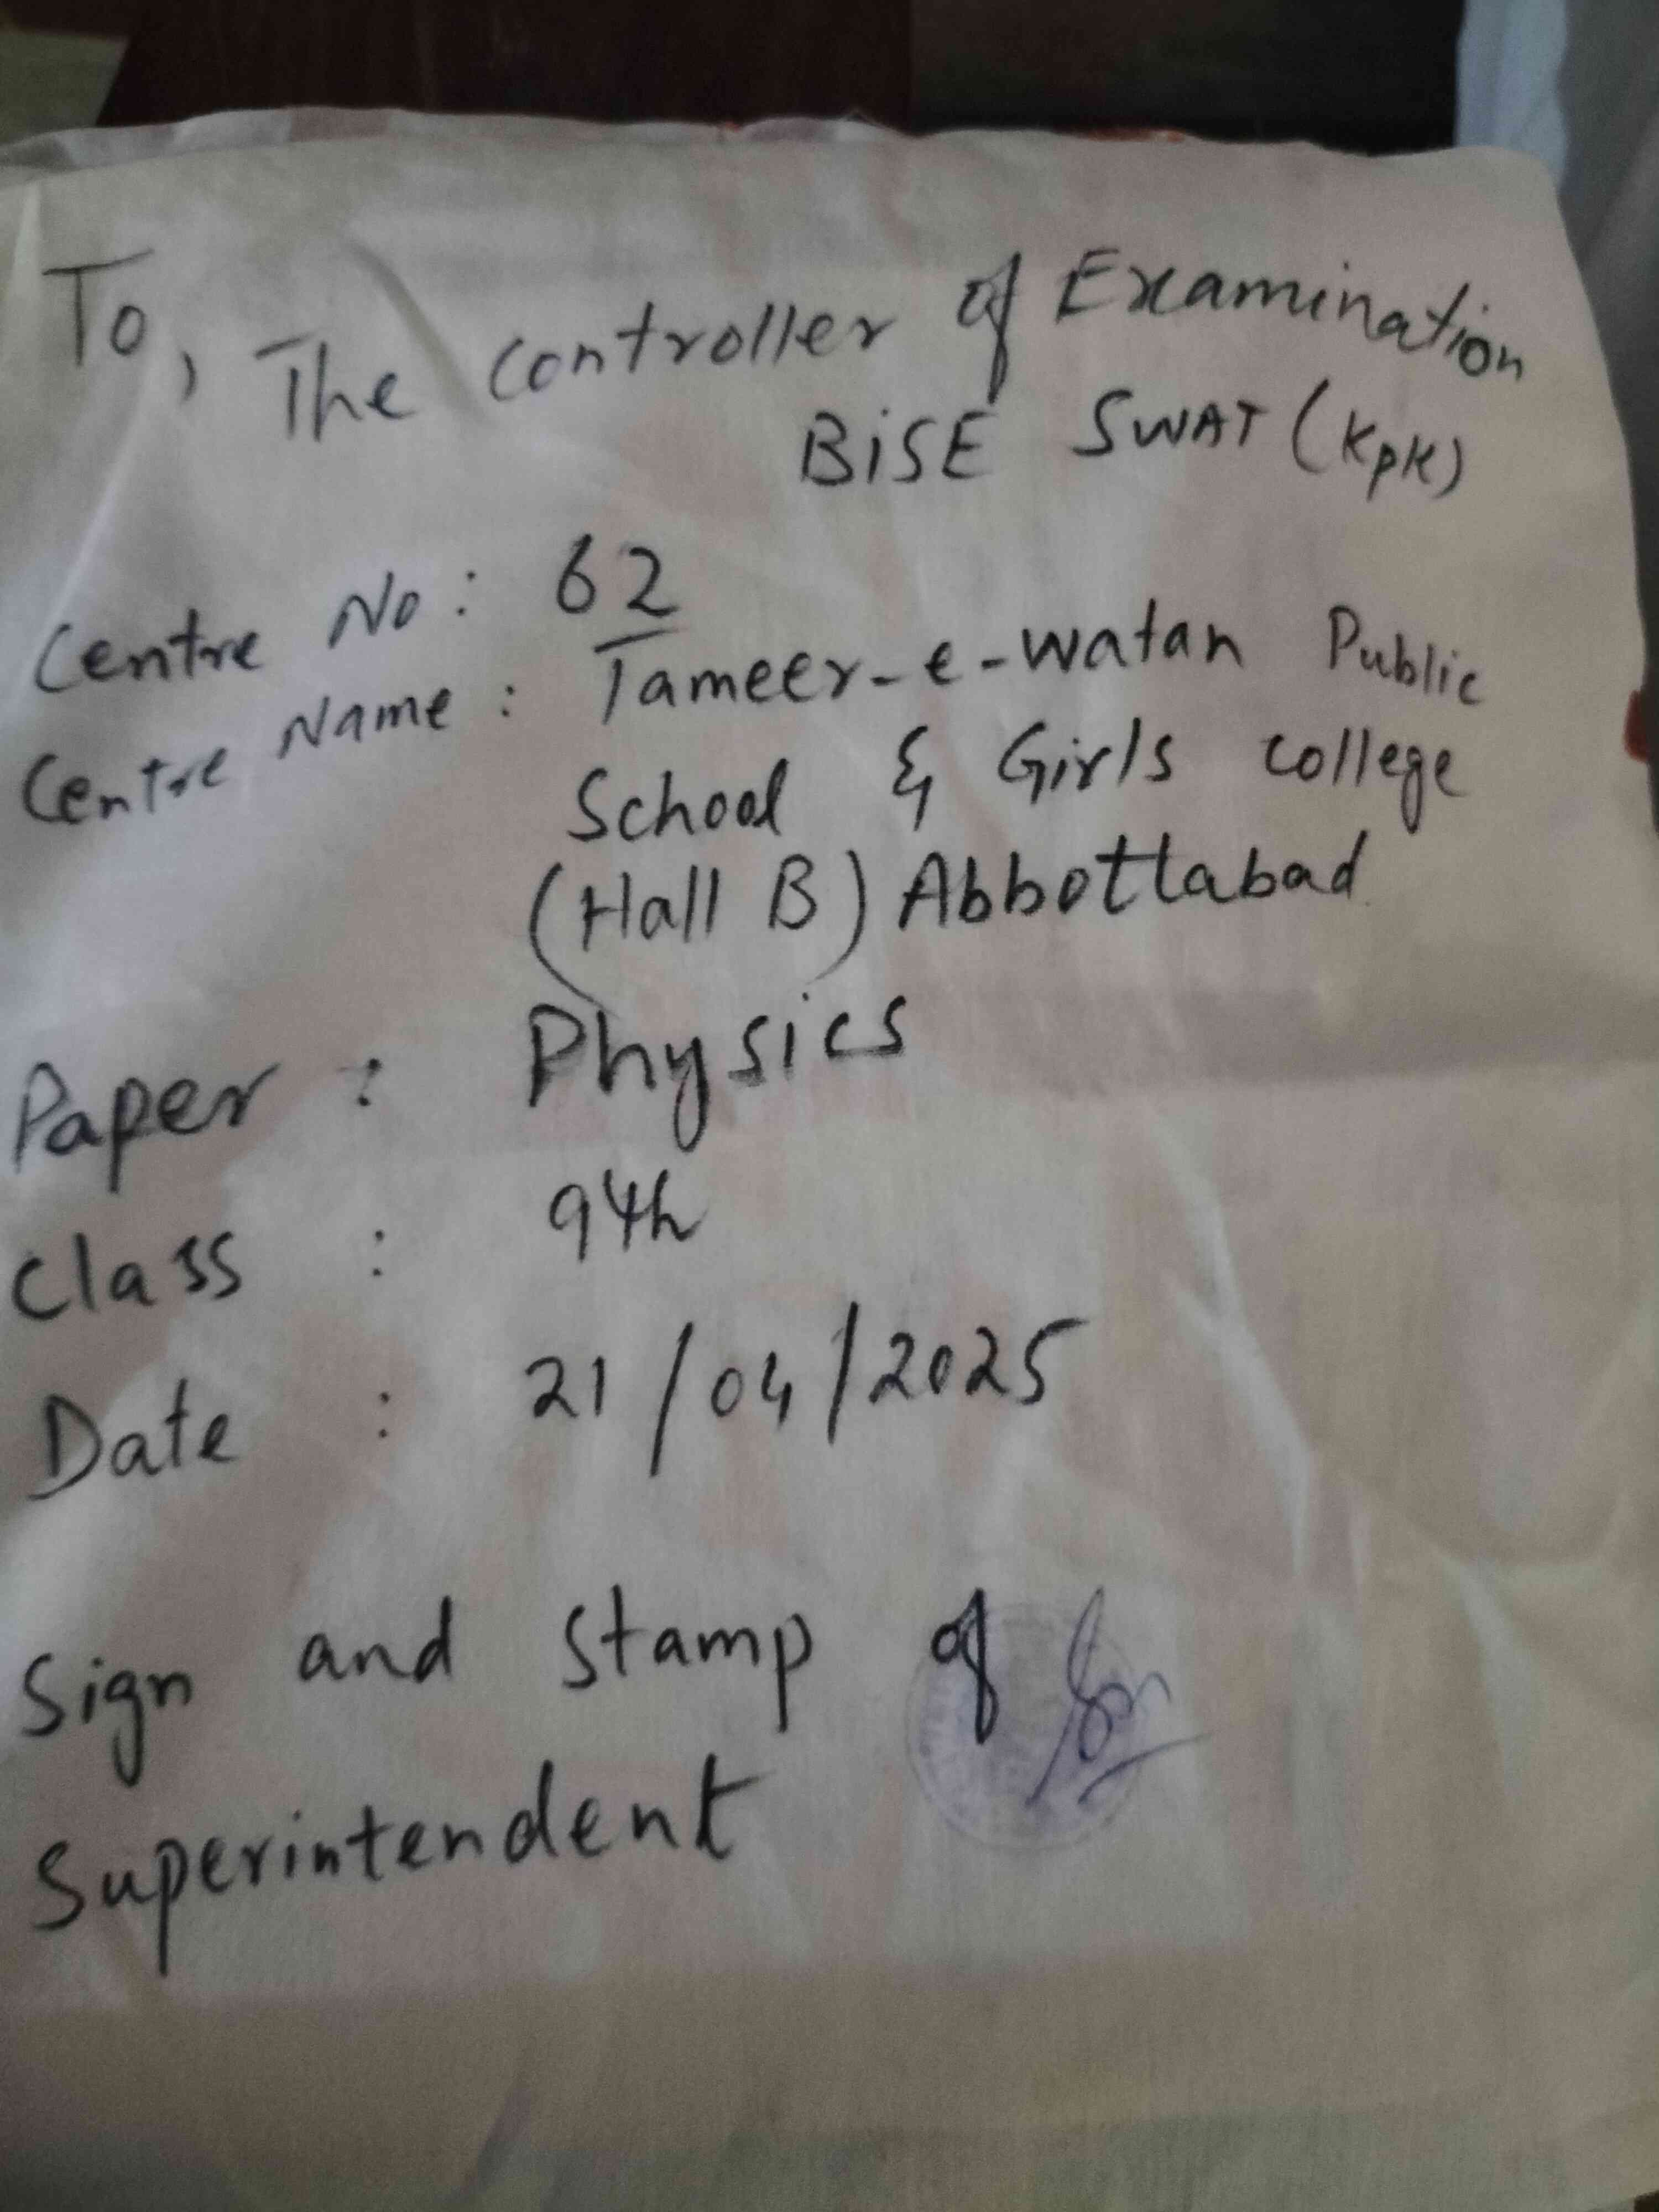 To,
The Controller of Examination
BiSE SWAT (KPK)
Centre No: 62
Centre Name: Tameer-e-watan Public
School & Girls College
(Hall B) Abbottabad
Paper : Physics
Class : 9th
Date : 21/04/2025
Sign and Stamp of
Superintendent